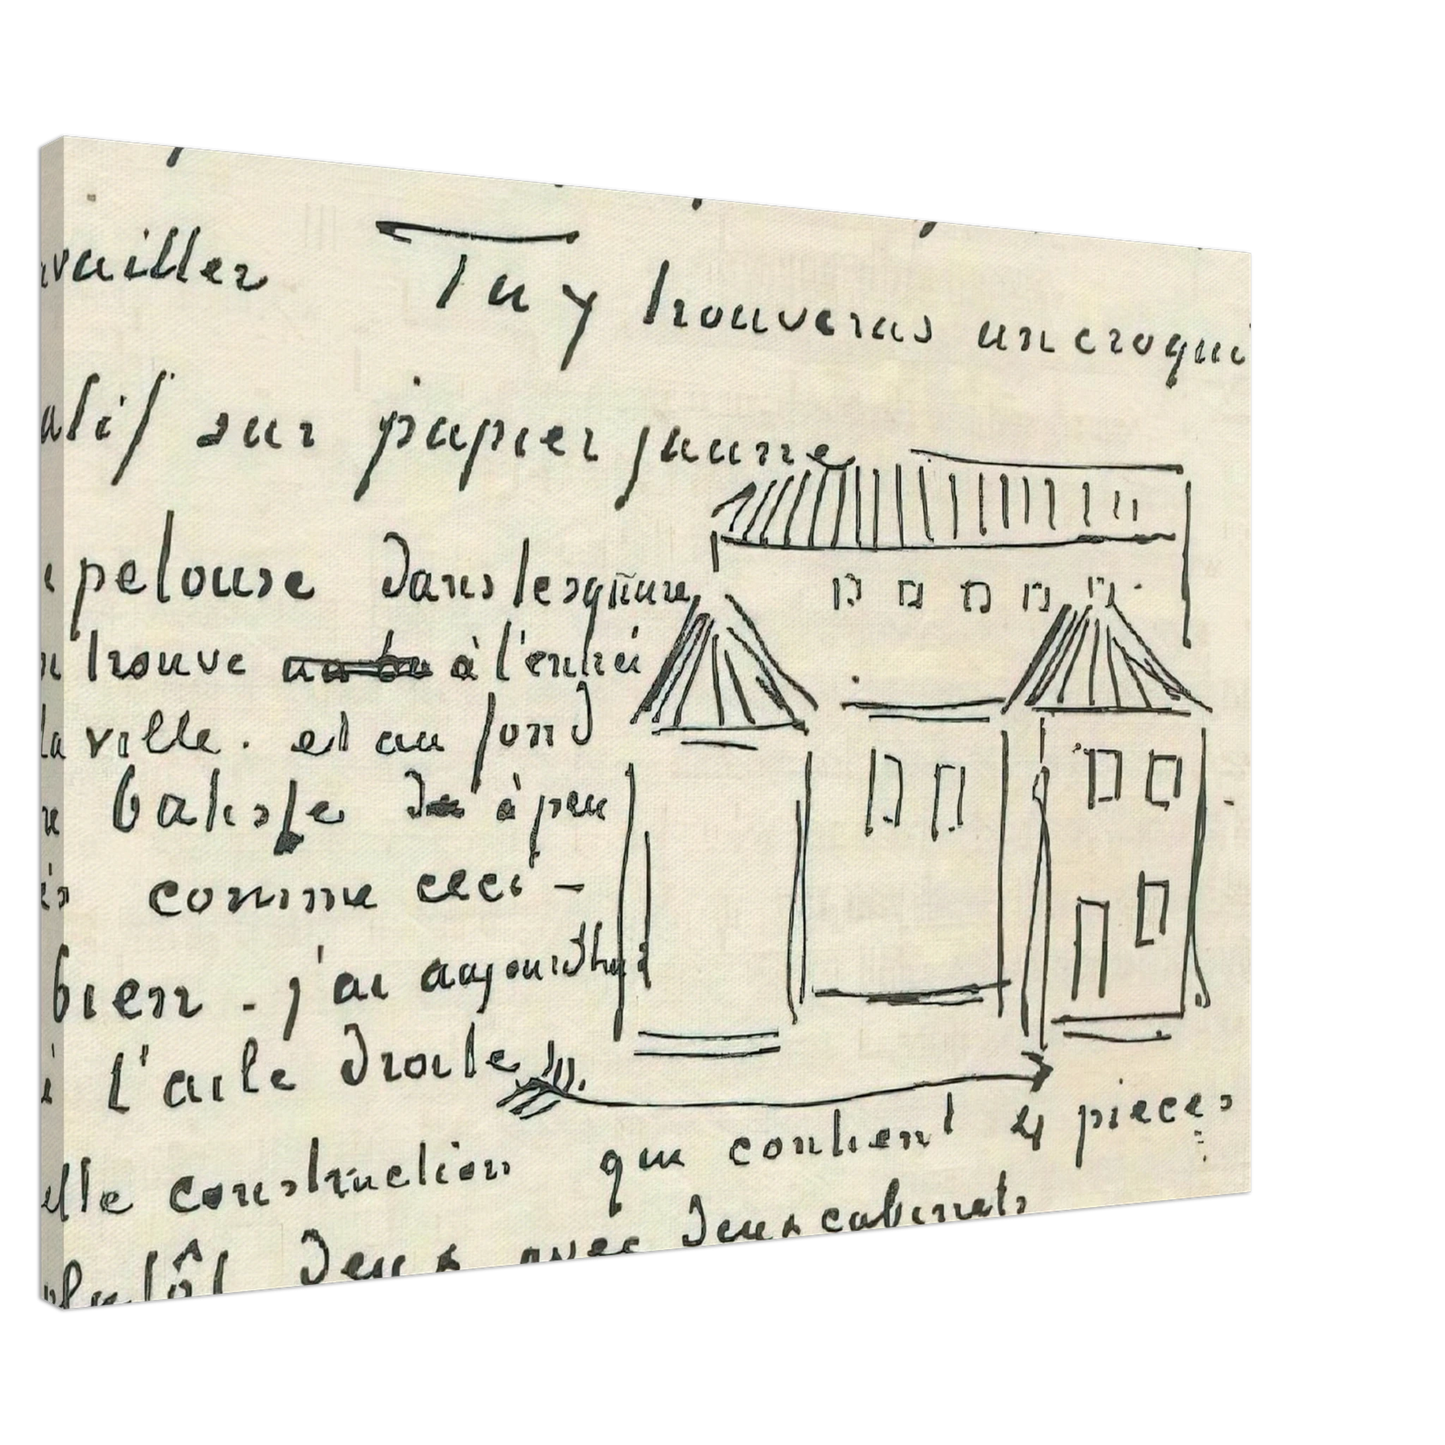 availler Tu y trouveras un croqui
atif sur papier jaune
e pelouse dans le square
n trouve à l'entrée
la ville. et au fond
re batisse de à peu
ès comme ceci –
bien - j'ai aujourdhui
é l'aile droite
elle construction qui contient 4 pieces
plutôt deux avec deux cabinets